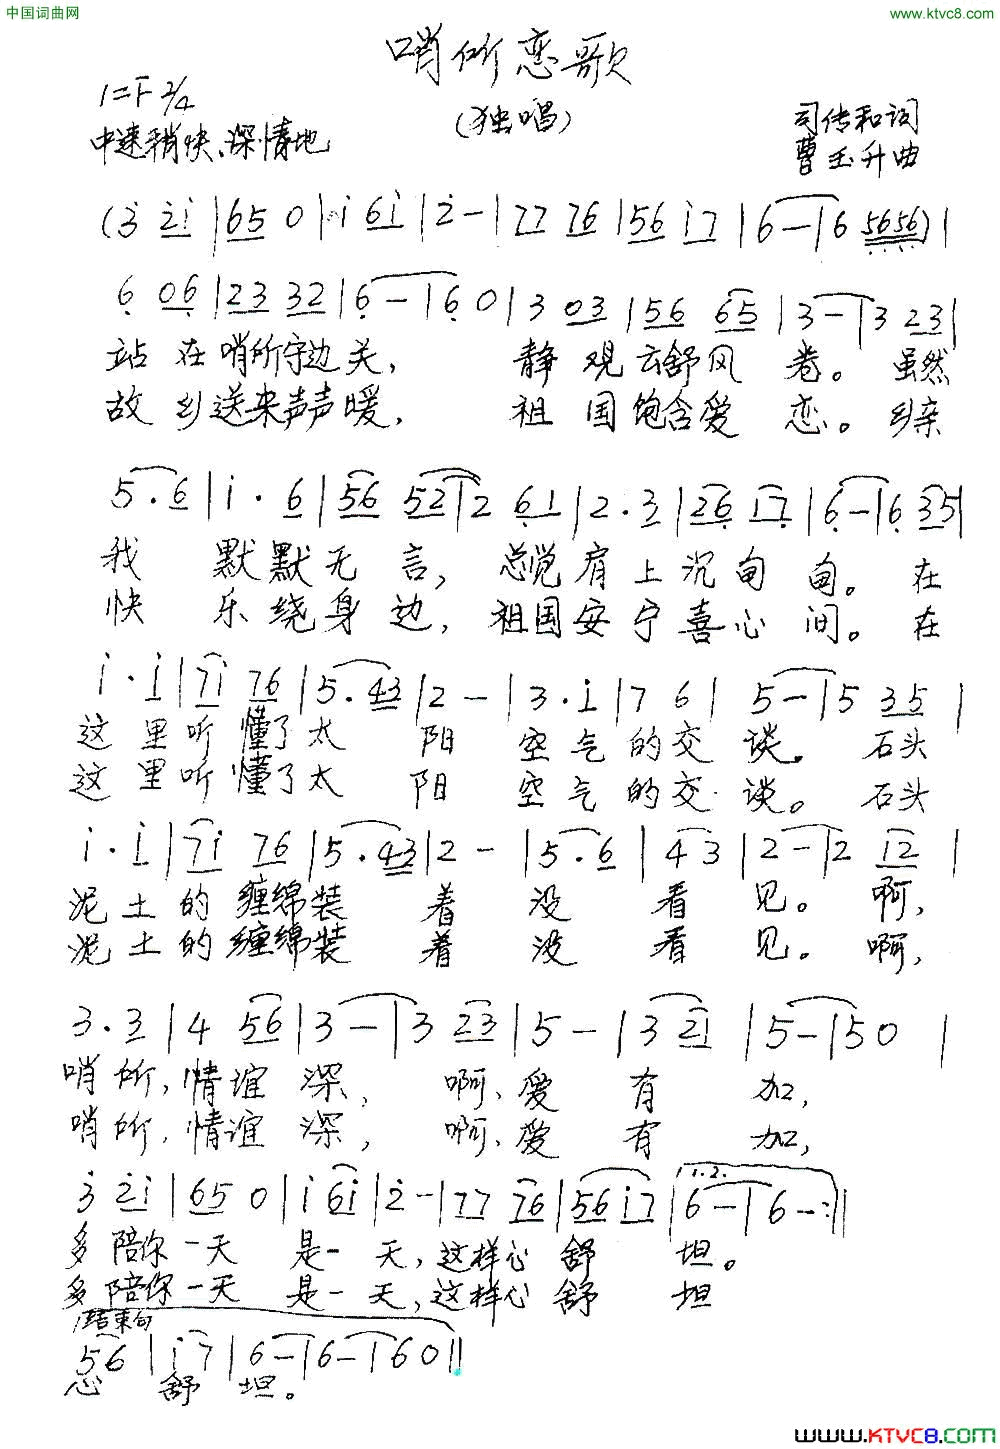 中国词曲网
www.ktvc8.com
哨所恋歌
1=F 2/4
(独唱)
司传和词
中速稍快、深情地
曹玉升曲
(3̇ 2̇1̇ | 65 0 | 1̇ 61̇ | 2̇ - | 77 76 | 56 1̇7 | 6 - | 6 5656) |
6̣ 06̣ | 23 32 | 6̣ - | 6̣ 0 | 3 03 | 56 65 | 3 - | 3 23 |
站在哨所守边关, 静观云舒风卷。虽然
故乡送来声声暖, 祖国饱含爱恋。乡亲
5·6 | 1̇·6 | 56 52 | 2 6̣1 | 2·3 | 26̣ 17̣ | 6̣ - | 6̣ 35 |
我默默无言, 总觉肩上沉甸甸。在
快乐绕身边, 祖国安宁喜心间。在
1̇·1̇ | 71̇ 76 | 5·43 | 2 - | 3·1̇ | 7 6 | 5 - | 5 35 |
这里听懂了太阳空气的交谈。石头
这里听懂了太阳空气的交谈。石头
1̇·1̇ | 71̇ 76 | 5·43 | 2 - | 5·6 | 43 | 2 - | 2 12 |
泥土的缠绵装着没看见。啊,
泥土的缠绵装着没看见。啊,
3·3 | 4 56 | 3 - | 3 23 | 5 - | 3 21 | 5 - | 50 |
哨所,情谊深, 啊、爱有加,
哨所,情谊深, 啊、爱有加,
3̇ 2̇1̇ | 65 0 | 1̇ 61̇ | 2̇ - | 77 76 | 56 1̇7 | 6 - | 6 - :||
1.2.
多陪你一天是一天,这样心舒坦。
多陪你一天是一天,这样心舒坦
结束句
56 | 1̇7 | 6 - | 6 - | 60 ||
心舒坦。
www.KTVC8.com